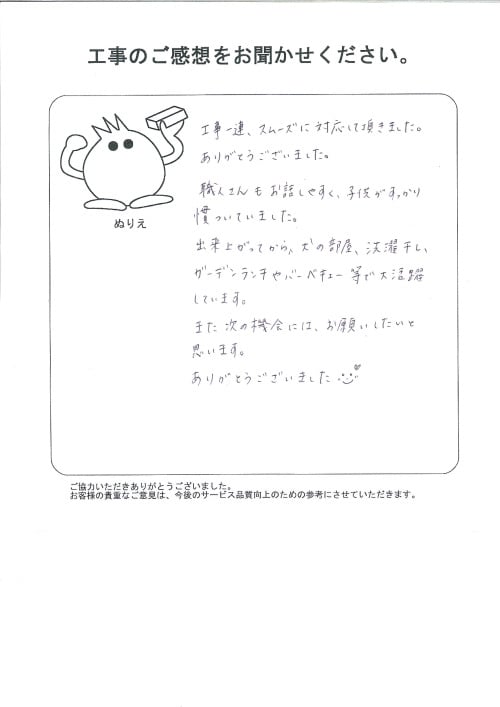 工事のご感想をお聞かせください。
工事一連、スムーズに対応して頂きました。
ありがとうございました。
職人さんもお話しやすく、子供がすっかり
慣ついていました。
出来上がってから、犬の部屋、洗濯干し、
ガーデンランチやバーベキュー等で大活躍
しています。
また次の機会には、お願いしたいと
思います。
ありがとうございました
ぬりえ
ご協力いただきありがとうございました。
お客様の貴重なご意見は、今後のサービス品質向上のための参考にさせていただきます。